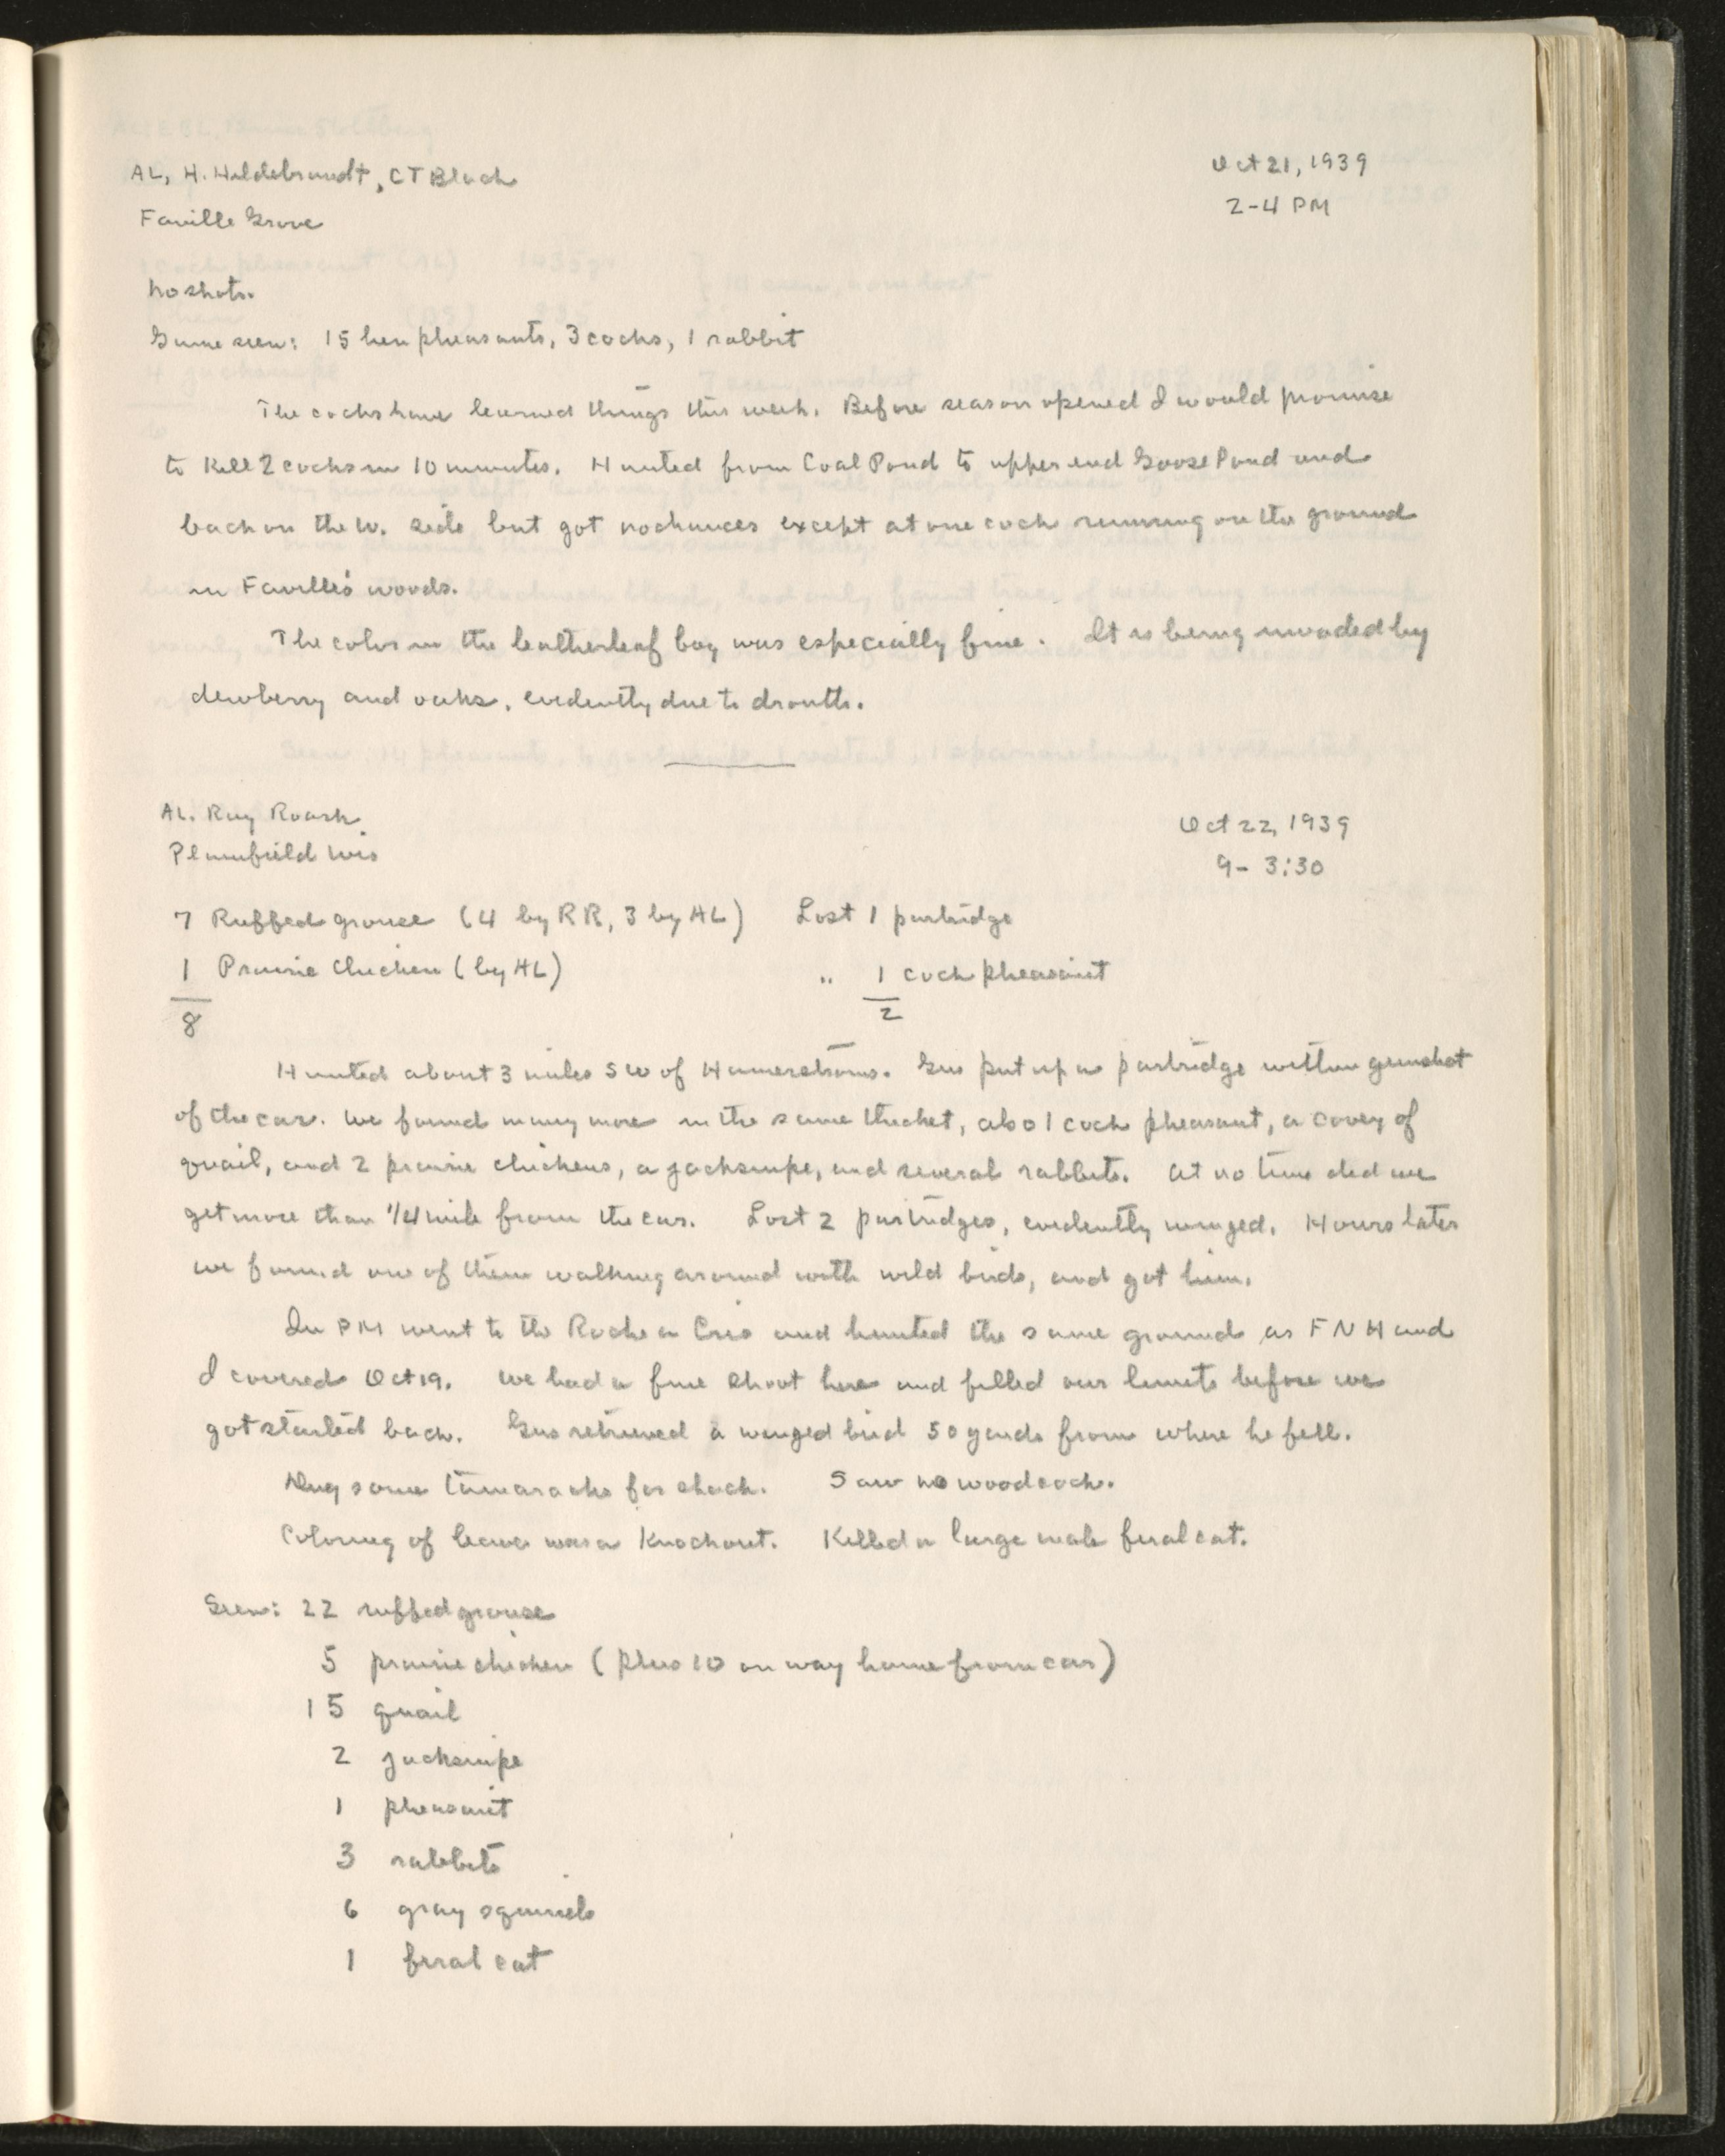 AL, H. Hildebrandt, CT Black
Oct 21, 1939
Faville Grove
2-4 PM
No shots.
Game seen: 15 hen pheasants, 3 cocks, 1 rabbit
The cocks have learned things this week. Before season opened I would promise
to kill 2 cocks in 10 minutes. Hunted from Coal Pond to upper end Goose Pond and
back on the W. side but got no chances except at one cock running on the ground
in Faville's woods.
The color in the leatherleaf bog was especially fine. It is being invaded by
dewberry and oaks, evidently due to drouth.
AL. Ray Roark
Oct 22, 1939
Plainfield Wis
9- 3:30
7 Ruffed grouse (4 by RR, 3 by AL) Lost 1 partridge
1 Prairie Chicken (by AL) " 1 cock pheasant
8 2
Hunted about 3 miles SW of Hamerstroms. Gus put up a partridge within gunshot
of the car. We found many more in the same thicket, also 1 cock pheasant, a covey of
quail, and 2 prairie chickens, a jacksnipe, and several rabbits. At no time did we
get more than 1/4 mile from the car. Lost 2 partridges, evidently winged. Hours later
we found one of them walking around with wild birds, and got him.
In PM went to the Roche a Cris and hunted the same ground as FNH and
I covered Oct 19. We had a fine shoot here and filled our limits before we
got started back. Gus retrieved a winged bird 50 yards from where he fell.
Dug some tamaracks for shack. Saw no woodcock.
Coloring of leaves was a knockout. Killed a large male feral cat.
Seen: 22 ruffed grouse
5 prairie chicken (plus 10 on way home from car)
15 quail
2 jacksnipe
1 pheasant
3 rabbits
6 gray squirrels
1 feral cat